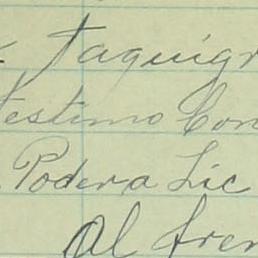 Taquigr
Testimo Con
Podera Lic
Al fren